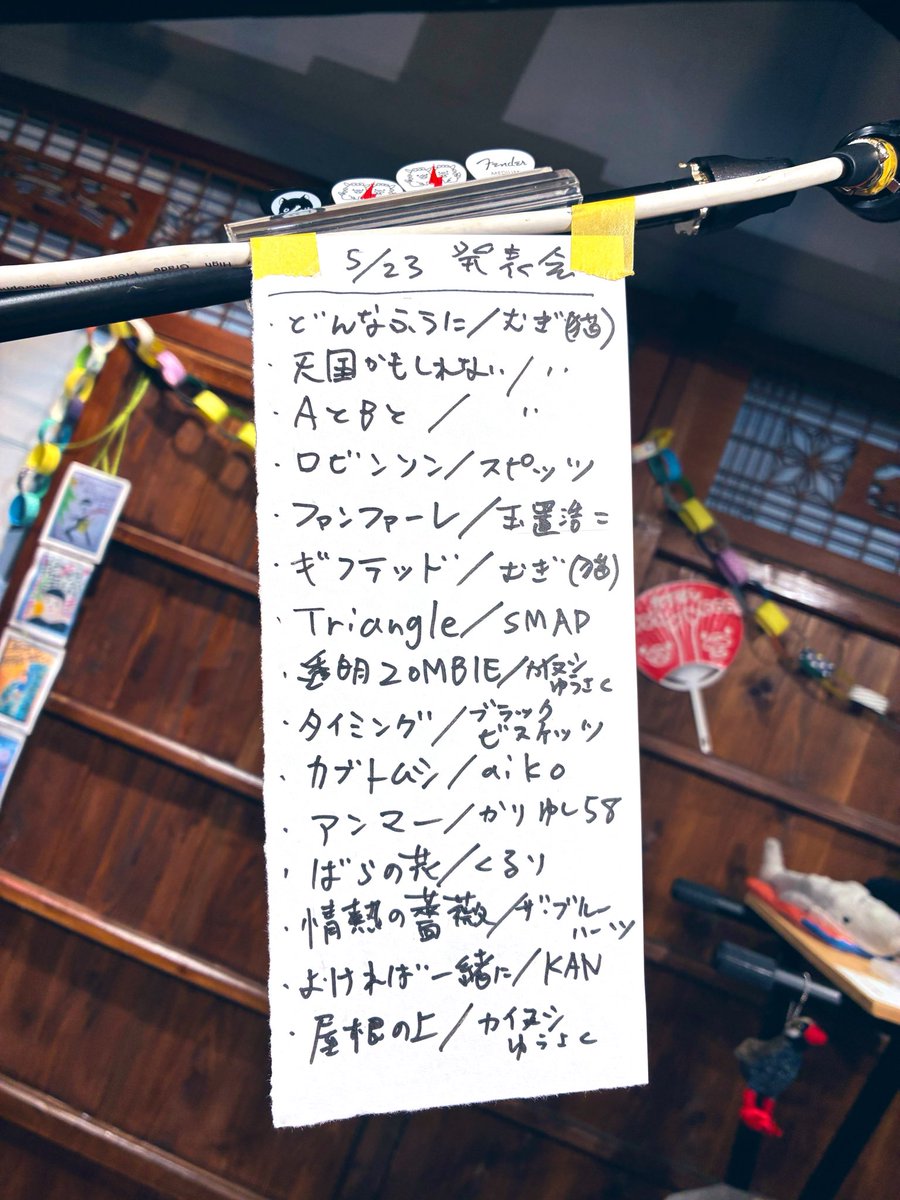 Fender
MEDIUM
High Grade
Professional
5/23 発表会
・どんなふうに/むぎ(猫)
・天国かもしれない/〃
・AとBと/〃
・ロビンソン/スピッツ
・ファンファーレ/玉置浩二
・ギフテッド/むぎ(猫)
・Triangle/SMAP
・透明ZOMBIE/カイヌシ
ゆうさく
・タイミング/ブラック
ビスケッツ
・カブトムシ/aiko
・アンマー/かりゆし58
・ばらの花/くるり
・情熱の薔薇/ザ・ブルー
ハーツ
・よければ一緒に/KAN
・屋根の上/カイヌシ
ゆうさく